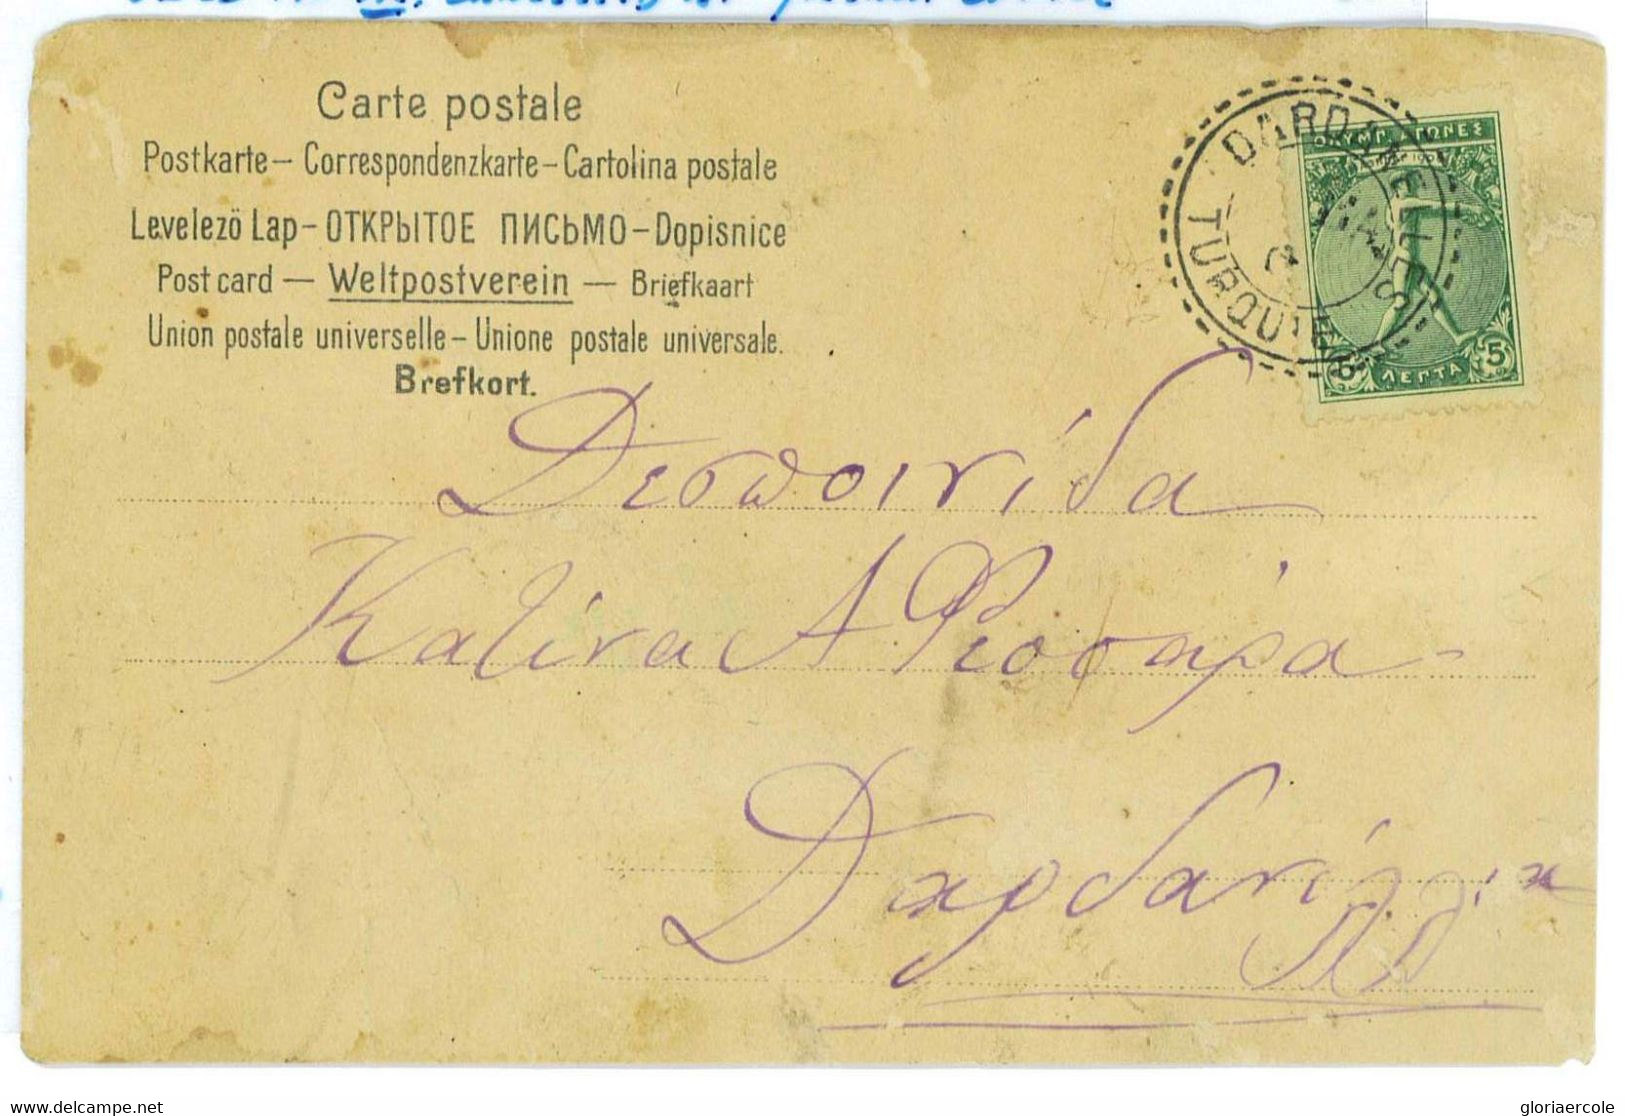 Carte postale
Postkarte – Correspondenzkarte – Cartolina postale
Levelezö Lap – ОТКРЫТОЕ ПИСЬМО – Dopisnice
Post card — Weltpostverein — Briefkaart
Union postale universelle – Unione postale universale.
Brefkort.
DARDANELLES
TURQUIE
ΟΛΥΜΠ ΑΓΩΝΕΣ
5 ΛΕΠΤΑ 5
Δεσποινίδα
Κατίνα Α
Δαρδανέλλια
delcampe.net
gloriaercole